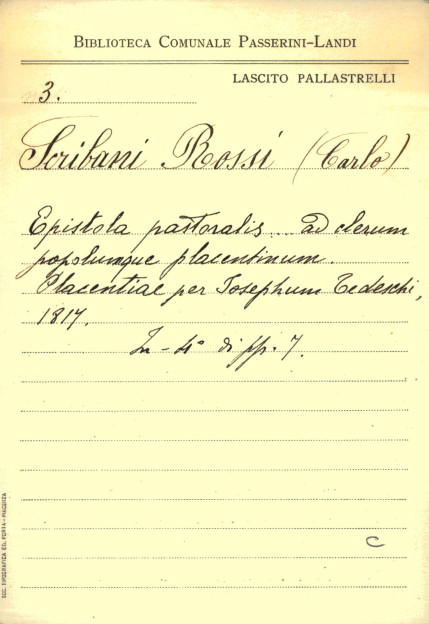 BIBLIOTECA COMUNALE PASSERINI-LANDI
LASCITO PALLASTRELLI
3.
Scribani Rossi (Carlo)
Epistola pastoralis... ad clerum
popolumque placentinum.
Placentiae per Josephum Tedeschi,
1817.
In-4° di pp. 7.
C
SOC. TIPOGRAFICA ED. PORTA - PIACENZA